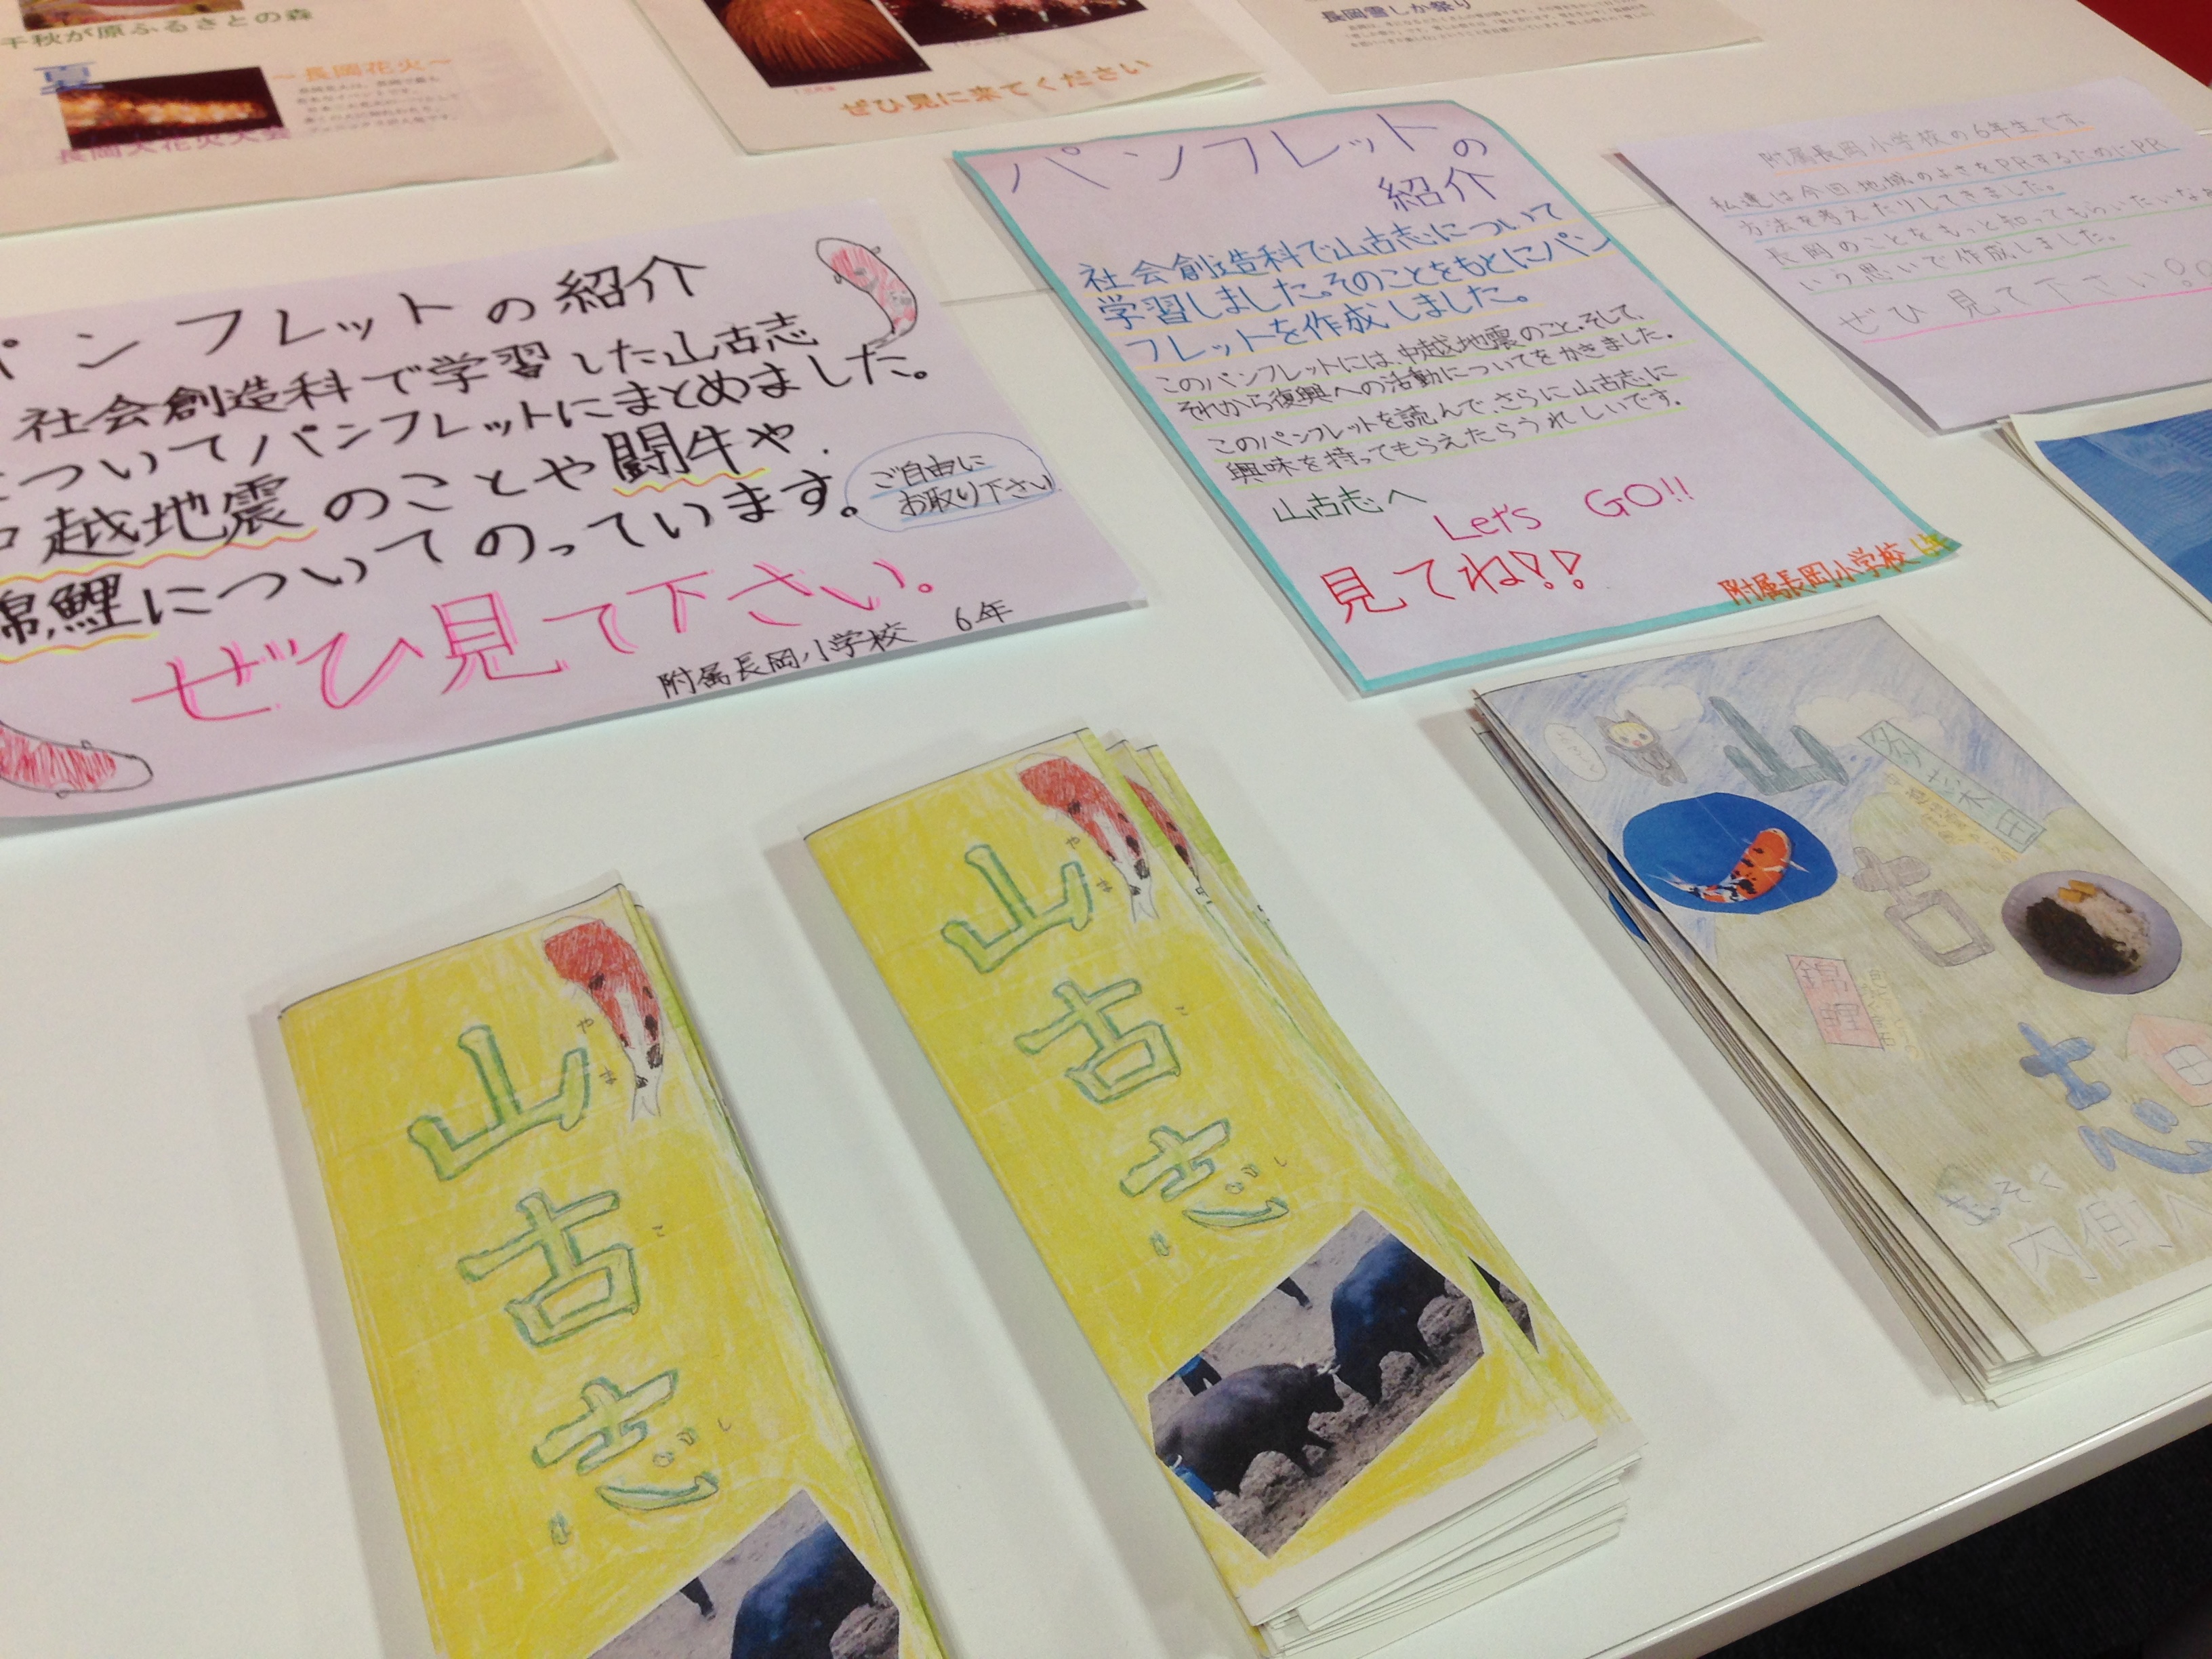 千秋が原ふるさとの森
夏
～長岡花火～
長岡大花火大会
ぜひ見に来てください
長岡雪しか祭り
パンフレットの紹介
社会創造科で学習した山古志
についてパンフレットにまとめました。
中越地震のことや闘牛や
錦鯉についてのっています。
ご自由に
お取り下さい
ぜひ見て下さい。
附属長岡小学校 6年
パンフレットの
紹介
社会創造科で山古志について
学習しました。そのことをもとにパン
フレットを作成しました。
このパンフレットには、中越地震のこと、そして、
それから復興への活動についてをかきました。
このパンフレットを読んで、さらに山古志に
興味を持ってもらえたらうれしいです。
山古志へ
Let's GO!!
見てね!!
附属長岡小学校 6年
附属長岡小学校の6年生です。
私達は今回地域のよさをPRするためにPR
方法を考えたりしてきました。
長岡のことをもっと知ってもらいたいなと
いう思いで作成しました。
ぜひ見て下さい!!
山古志
やま
こ
し
山古志
やま
こ
し
山古志
錦鯉
内側へ